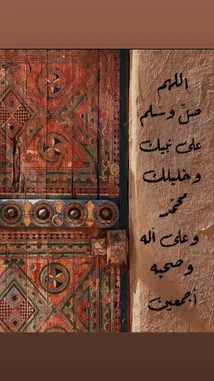 اللهم
صلّ وسلم
على نبيك
وخليلك
محمّد
وعلى آله
وصحبه
أجمعين